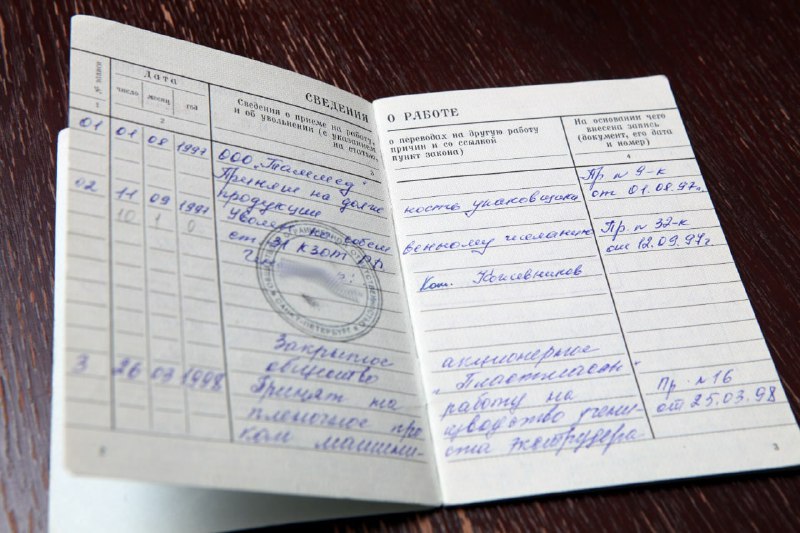 СВЕДЕНИЯ О РАБОТЕ
№ записи
Дата
число
месяц
год
Сведения о приеме на работу, о переводах на другую работу
и об увольнении (с указанием причин и со ссылкой
на статью, пункт закона)
На основании чего
внесена запись
(документ, его дата
и номер)
1 2 3 4
01 01 08 1997
ООО
Принят на долж ность упаковщика Пр n 9-к
продукции от 01.08.97г.
02 11 09 1997 Уволен по собст венному желанию Пр. n 32-к
10 1 0 от 31 КЗОТ РФ от 12.09.97г.
Кожевников
САНКТ-ПЕТЕРБУРГ
Закрытое акционерное
общество „Пластполимер"
3 26 03 1998 Принят на работу на Пр. n 16
пленочное про изводство учени- от 25.03.98
ком машини- ста экструдера
3